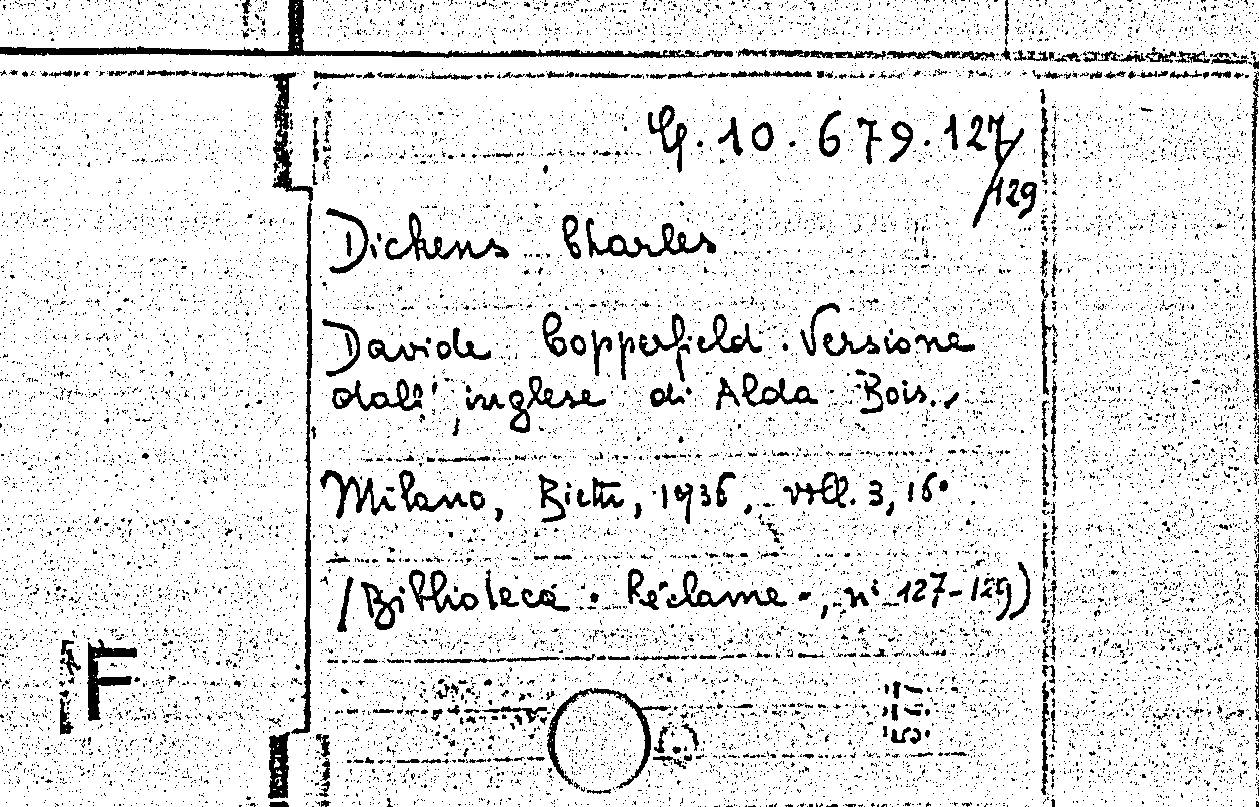 G. 10. 679. 127/
/129
Dickens Charles
Davide Copperfield. Versione
dall' inglese di Alda Bois.
Milano, Bietti, 1936, voll. 3, 16°
(Biblioteca "Réclame", ni 127-129)
F